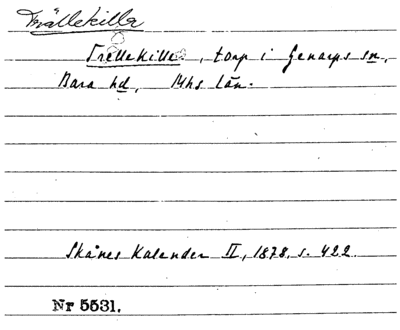 Trällekilla
Trällekille, torp i Genarps sn,
Bara hd, Mhs län.
Skånes Kalender II, 1878, s. 422
Nr 5531.